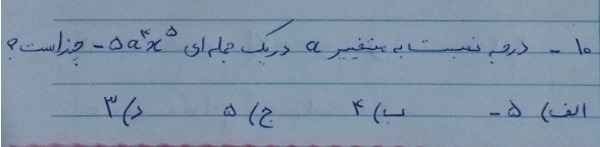 ۱۰ - درجه نسبت به متغییر a در یک جمله ای -۵a⁴x⁵ چند است؟
الف) -۵ ب) ۴ ج) ۵ د) ۳